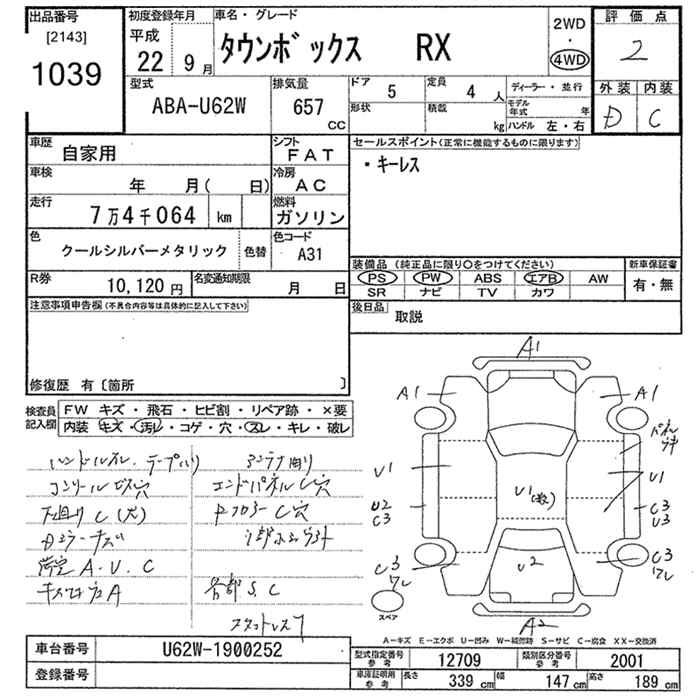 出品番号
[2143]
1039
初度登録年月
平成
22 9月
車名・グレード
タウンボックス RX
2WD
・
4WD
評価点
2
外装 内装
D C
型式
ABA-U62W
排気量
657 CC
ドア 5
定員 4人
形状
積載 kg
ディーラー・並行
モデル年式 年
ハンドル 左・右
車歴 自家用
シフト FAT
車検 年 月( 日)
冷房 AC
走行 7万4千064 km
燃料 ガソリン
色 クールシルバーメタリック
色替
色コード A31
R券 10,120円
名変通知期限 月 日
セールスポイント(正常に機能するものに限ります)
・キーレス
装備品(純正品に限り○をつけてください)
新車保証書
PS PW ABS エアB AW
SR ナビ TV カワ
有・無
後日品 取説
注意事項申告欄(不具合内容等は具体的に記入して下さい)
修復歴 有〔箇所 〕
検査員記入欄
FW キズ・飛石・ヒビ割・リペア跡・×要
内装 キズ・汚レ・コゲ・穴・スレ・キレ・破レ
コンソールビス穴
エンドパネルC穴
下廻りC(大)
FフロアーC穴
A.V.C
各部S.C
A1
A1
A1
U1
U1
U1
U2
C3
C3
U3
C3
ワレ
U2
C3
ワレ
A2
スペア
A-キズ E-エクボ U-凹み W-補修跡 S-サビ C-腐食 XX-交換済
車台番号 U62W-1900252
登録番号
型式指定番号参考 12709
類別区分番号参考 2001
車庫証明用参考
長さ 339cm
幅 147cm
高さ 189cm